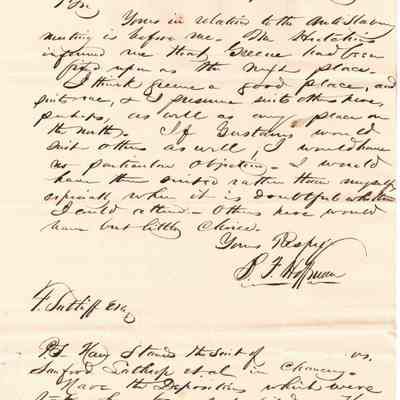 Sir
Yours in relation to the Anti Slavery
meeting is before me. Mr Hutchins
informed me that Greene had been
fixed upon as the next place.
I think Greene a good place, and
suits me, & I presume suits others here,
perhaps, as well as any place on
the north. If Gustavus would
suit others as well, I would have
no particular objection. I would
have them suited rather than myself
especially when it is doubtful whether
I could attend. Others here would
have but little choice.
Yours Respy
B. F. Hoffman
F. Sutliff Esq
P.S. How stands the suit of vs.
Sanford Lathrop et al. in Chancery.
Have the Depositions which were